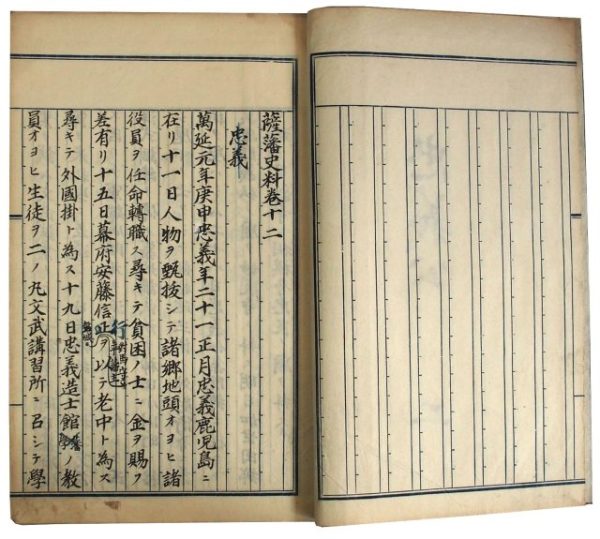 薩藩史料卷十二
忠義
萬延元年庚申忠義年二十一正月忠義鹿児島ニ
在リ十一日人物ヲ甄抜シテ諸郷地頭オヨヒ諸
役員ヲ任命轉職ス尋キテ貧困ノ士ニ金ヲ賜フ
差有リ十五日幕府安藤信正ヲ以テ老中ト為ス
行
尋キテ外國掛ト為ス十九日忠義造士館ノ教
員オヨヒ生徒ヲ二ノ丸文武講習所ニ召シテ學